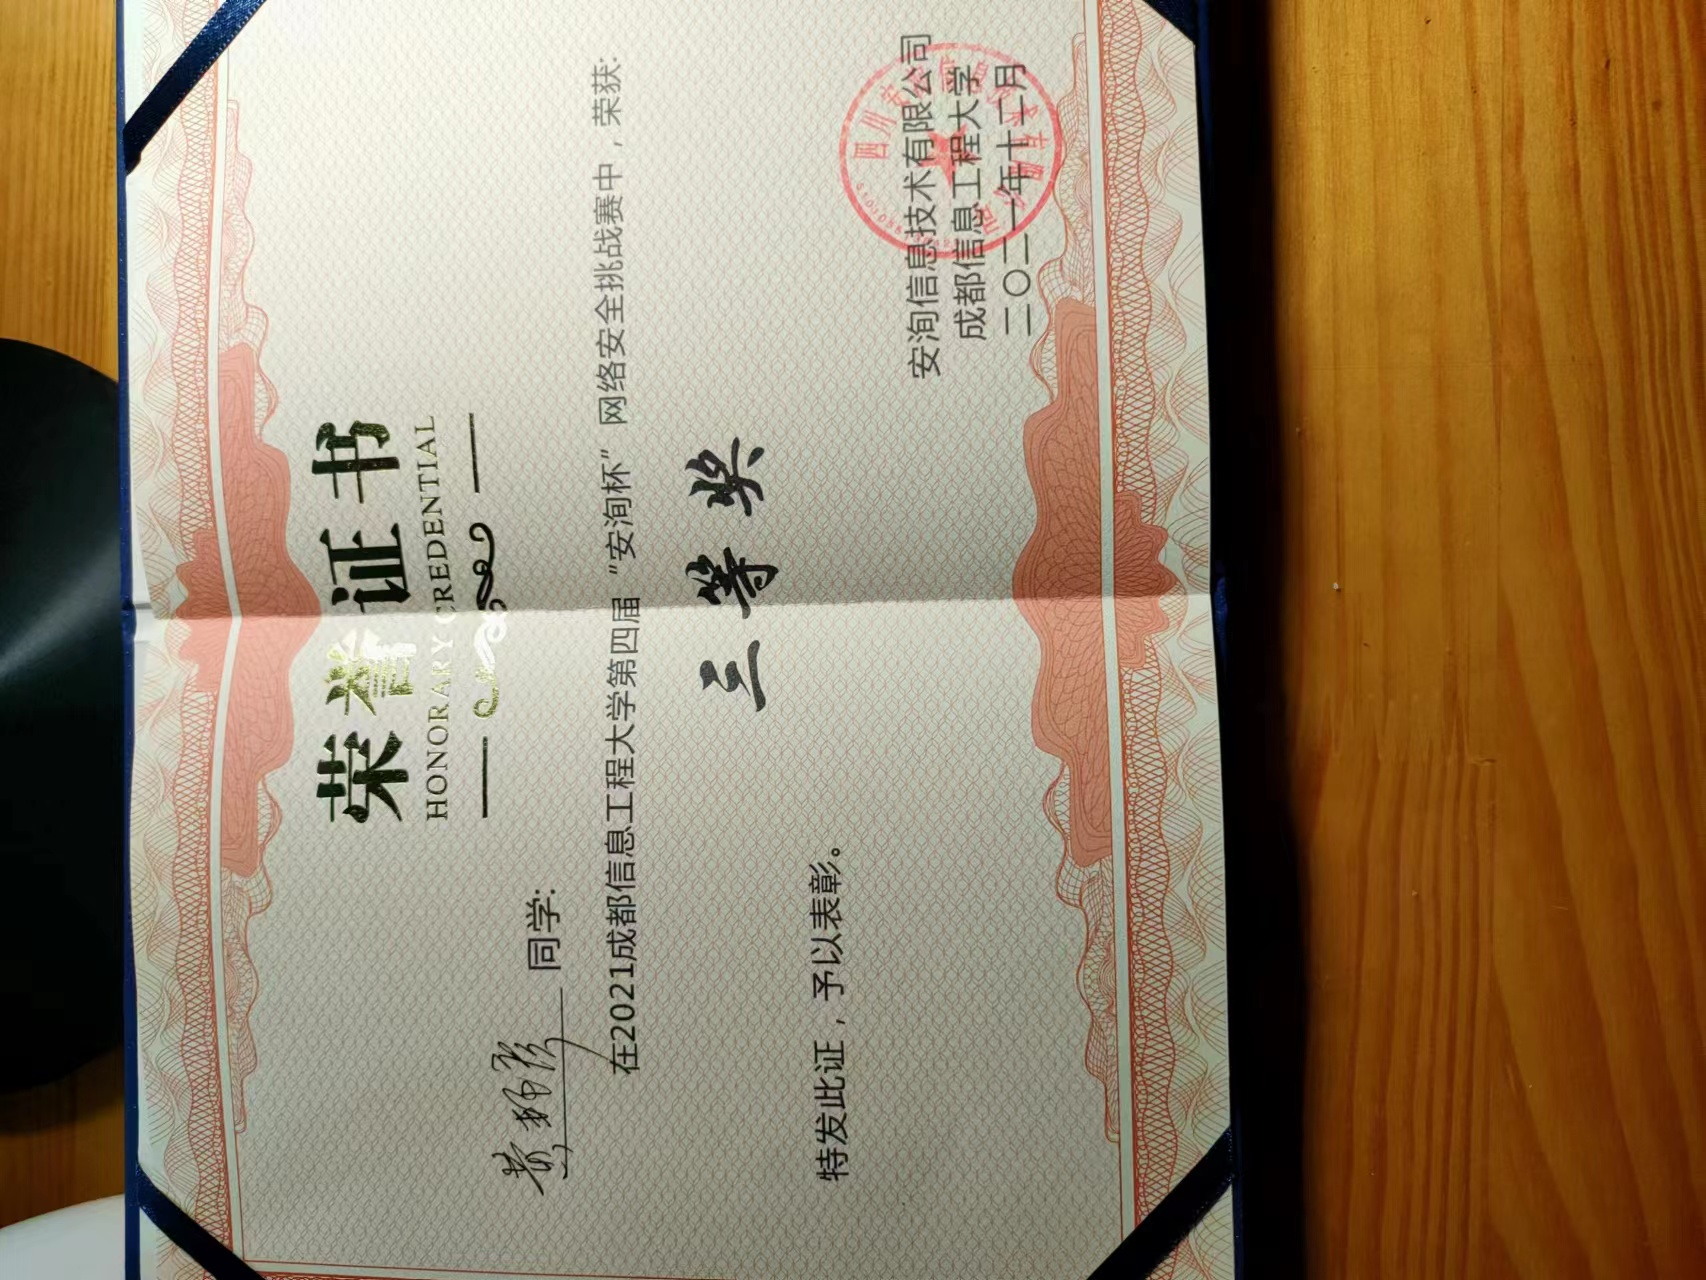 荣誉证书
HONORARY CREDENTIAL
同学:
在2021成都信息工程大学第四届“安洵杯”网络安全挑战赛中，荣获:
三等奖
特发此证，予以表彰。
安洵信息技术有限公司
成都信息工程大学
二〇二一年十二月